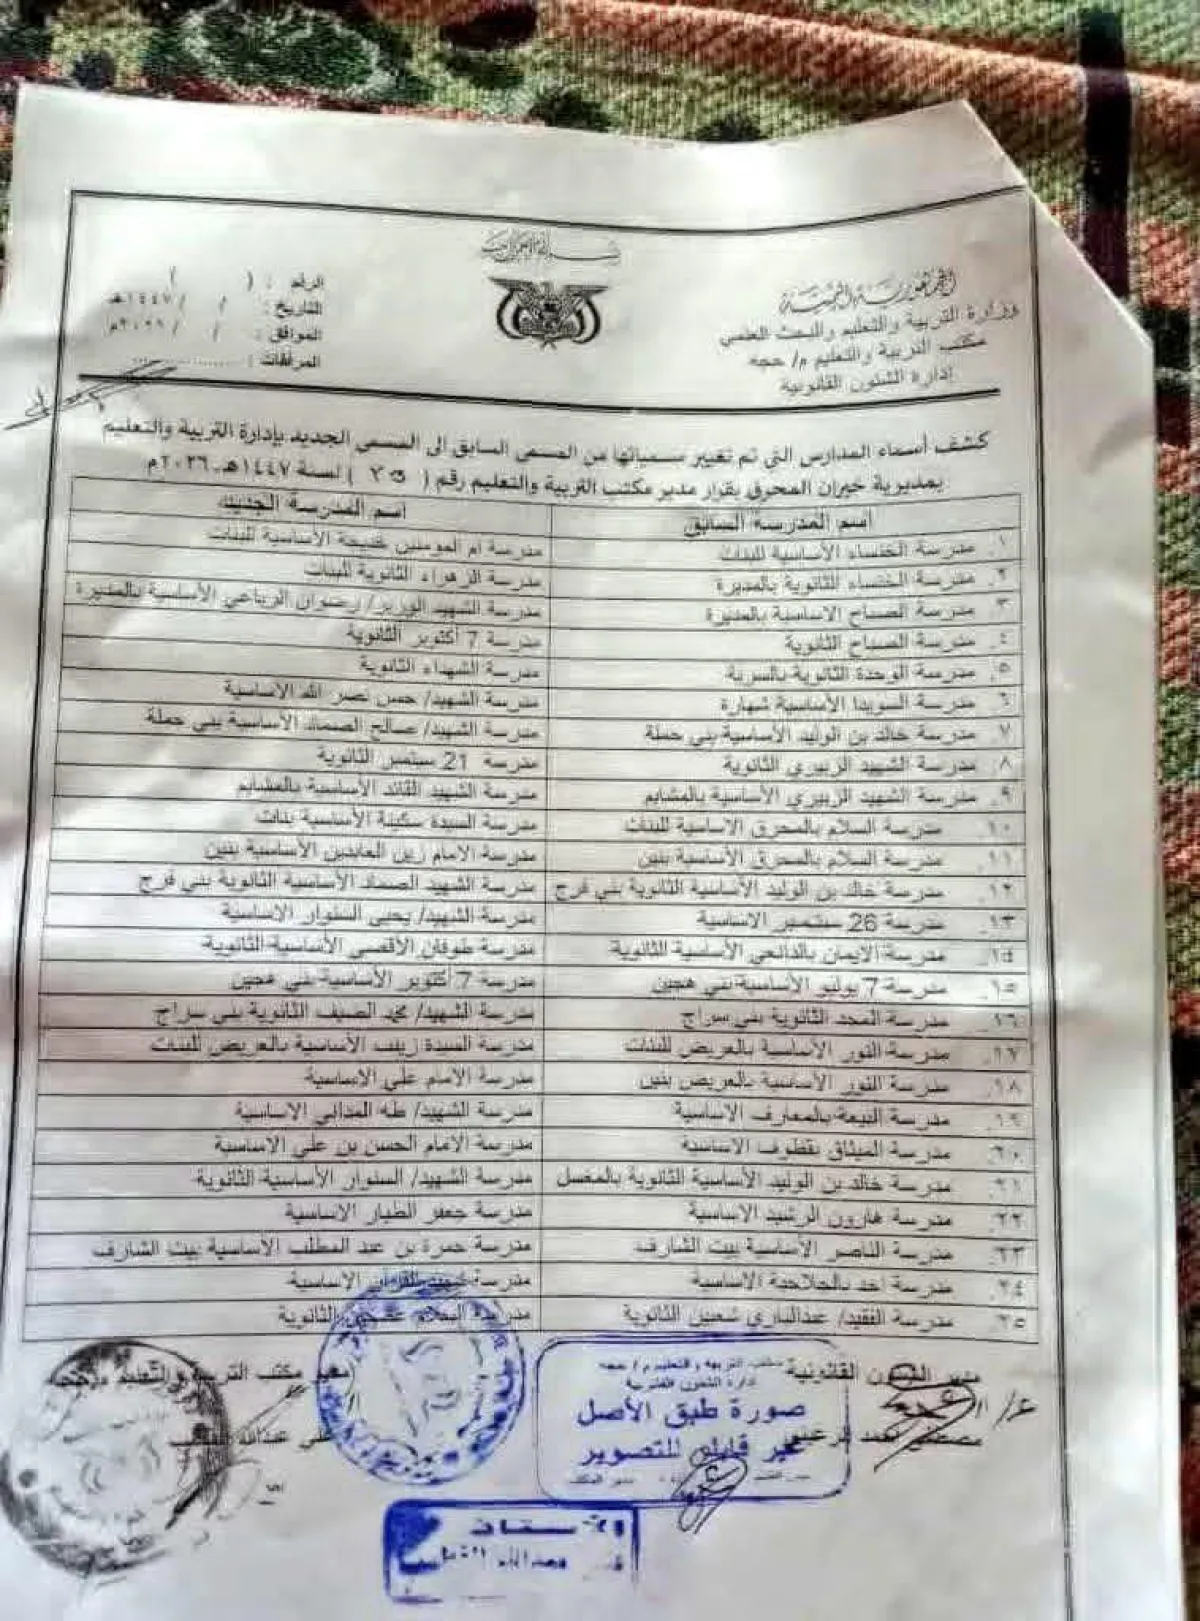 بسم الله الرحمن الرحيم
الجمهورية اليمنية
وزارة التربية والتعليم والبحث العلمي
مكتب التربية والتعليم م/ حجه
إدارة الشئون القانونية
الرقم : ( )
التاريخ : / / ١٤٤٧هـ
الموافق : / / ٢٠٢٦م
المرفقات : ..................
كشف أسماء المدارس التي تم تغيير مسمياتها من المسمى السابق الى المسمى الجديد بإدارة التربية والتعليم
بمديرية خيران المحرق بقرار مدير مكتب التربية والتعليم رقم ( ٣٥ ) لسنة ١٤٤٧هـ ٢٠٢٦م
اسم المدرسة السابق اسم المدرسة الجديد
١. مدرسة الخنساء الأساسية للبنات مدرسة ام المومنين خديجة الأساسية للبنات
٢. مدرسة الخنساء الثانوية بالمديرة مدرسة الزهراء الثانوية للبنات
٣. مدرسة الصباح الاساسية بالمديرة مدرسة الشهيد الوزير/ رضوان الرباعي الأساسية بالمديرة
٤. مدرسة الصباح الثانوية مدرسة 7 أكتوبر الثانوية
٥. مدرسة الوحدة الثانوية بالسرية مدرسة الشهداء الثانوية
٦. مدرسة السويدا الأساسية شهارة مدرسة الشهيد/ حسن نصر الله الاساسية
٧. مدرسة خالد بن الوليد الأساسية بني حملة مدرسة الشهيد/ صالح الصماد الأساسية بني حملة
٨. مدرسة الشهيد الزبيري الثانوية مدرسة 21 سبتمبر الثانوية
٩. مدرسة الشهيد الزبيري الأساسية بالمشايم مدرسة الشهيد القائد الأساسية بالمشايم
١٠. مدرسة السلام بالمحرق الاساسية للبنات مدرسة السيدة سكينة الأساسية بنات
١١. مدرسة السلام بالمحرق الأساسية بنين مدرسة الامام زين العابدين الأساسية بنين
١٢. مدرسة خالد بن الوليد الأساسية الثانوية بني فرج مدرسة الشهيد الصماد الأساسية الثانوية بني فرج
١٣. مدرسة 26 سبتمبر الاساسية مدرسة الشهيد/ يحيى السنوار الأساسية
١٤. مدرسة الايمان الأساسية الثانوية مدرسة طوفان الأقصى الأساسية الثانوية
١٥. مدرسة 7 يوليو الأساسية بني هجين مدرسة 7 أكتوبر الأساسية بني هجين
١٦. مدرسة المجد الثانوية بني سراج مدرسة الشهيد/ محمد الضيف الثانوية بني سراج
١٧. مدرسة النور الأساسية بالعريض للبنات مدرسة السيدة زينب الأساسية بالعريض للبنات
١٨. مدرسة النور الأساسية بالعريض بنين مدرسة الامام علي الاساسية
١٩. مدرسة بالمعارف الاساسية مدرسة الشهيد/ طه المداني الاساسية
٢٠. مدرسة الميثاق بقطوف الاساسية مدرسة الامام الحسن بن علي الأساسية
٢١. مدرسة خالد بن الوليد الأساسية الثانوية بالمغسل مدرسة الشهيد/ السنوار الأساسية الثانوية
٢٢. مدرسة هارون الرشيد الاساسية مدرسة جعفر الطيار الاساسية
٢٣. مدرسة الناصر الأساسية بيت الشارف مدرسة حمزة بن عبد المطلب الاساسية بيت الشارف
٢٤. مدرسة احد الاساسية مدرسة شهيد القران الاساسية
٢٥. مدرسة الفقيد/ عبدالباري شعبين الثانوية مدرسة الثانوية
مدير الشئون القانونية
مدير مكتب التربية والتعليم
مكتب التربية والتعليم م/ حجه
صورة طبق الأصل
غير قابلة للتصوير